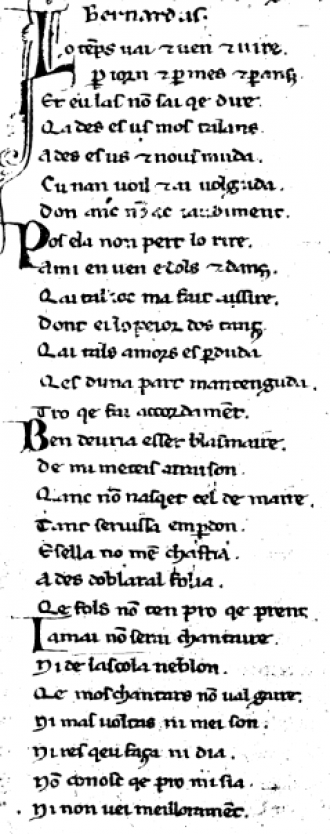 Bernardus.
Lo tẽps uai ⁊ uen ⁊ uire.
ꝑ iorn ⁊ ꝑ mes ⁊ ꝑ anȝ
Et eu las nõ sai qe dire
Qades es us mos talans.
Ades es us ⁊ nouf muda.
Cu nan uoil ⁊ ai uolguda.
Don anc nõ ac iauziment.
Pos ela non pert lo rire.
Ami en uen e dols ⁊ danȝ.
Qai tal ioc ma fait assire.
Donc ei lo peior dos tanȝ
Qai tals amors es ꝑduda
Qes duna part mantenguda.
Tro qe fai accordamẽt.
Ben deuria esser blasmaire.
De mi meteis a raison.
Qanc nõ nasqet cel de maire.
Tant seruissa em ꝑdon.
E sella no mẽ chastia.
Ades doblaral folia.
Qe fols nõ ten pro qe prent
Iamai nõ serai chantaire.
Ni de lascola neblon.
Qe mos chantars nõ ual gaire.
Ni mas uoltas ni mei son.
Ni res qeu faça ni dia.
Nõ conosc qe pro mi sia.
Ni non uei meilloramẽt.